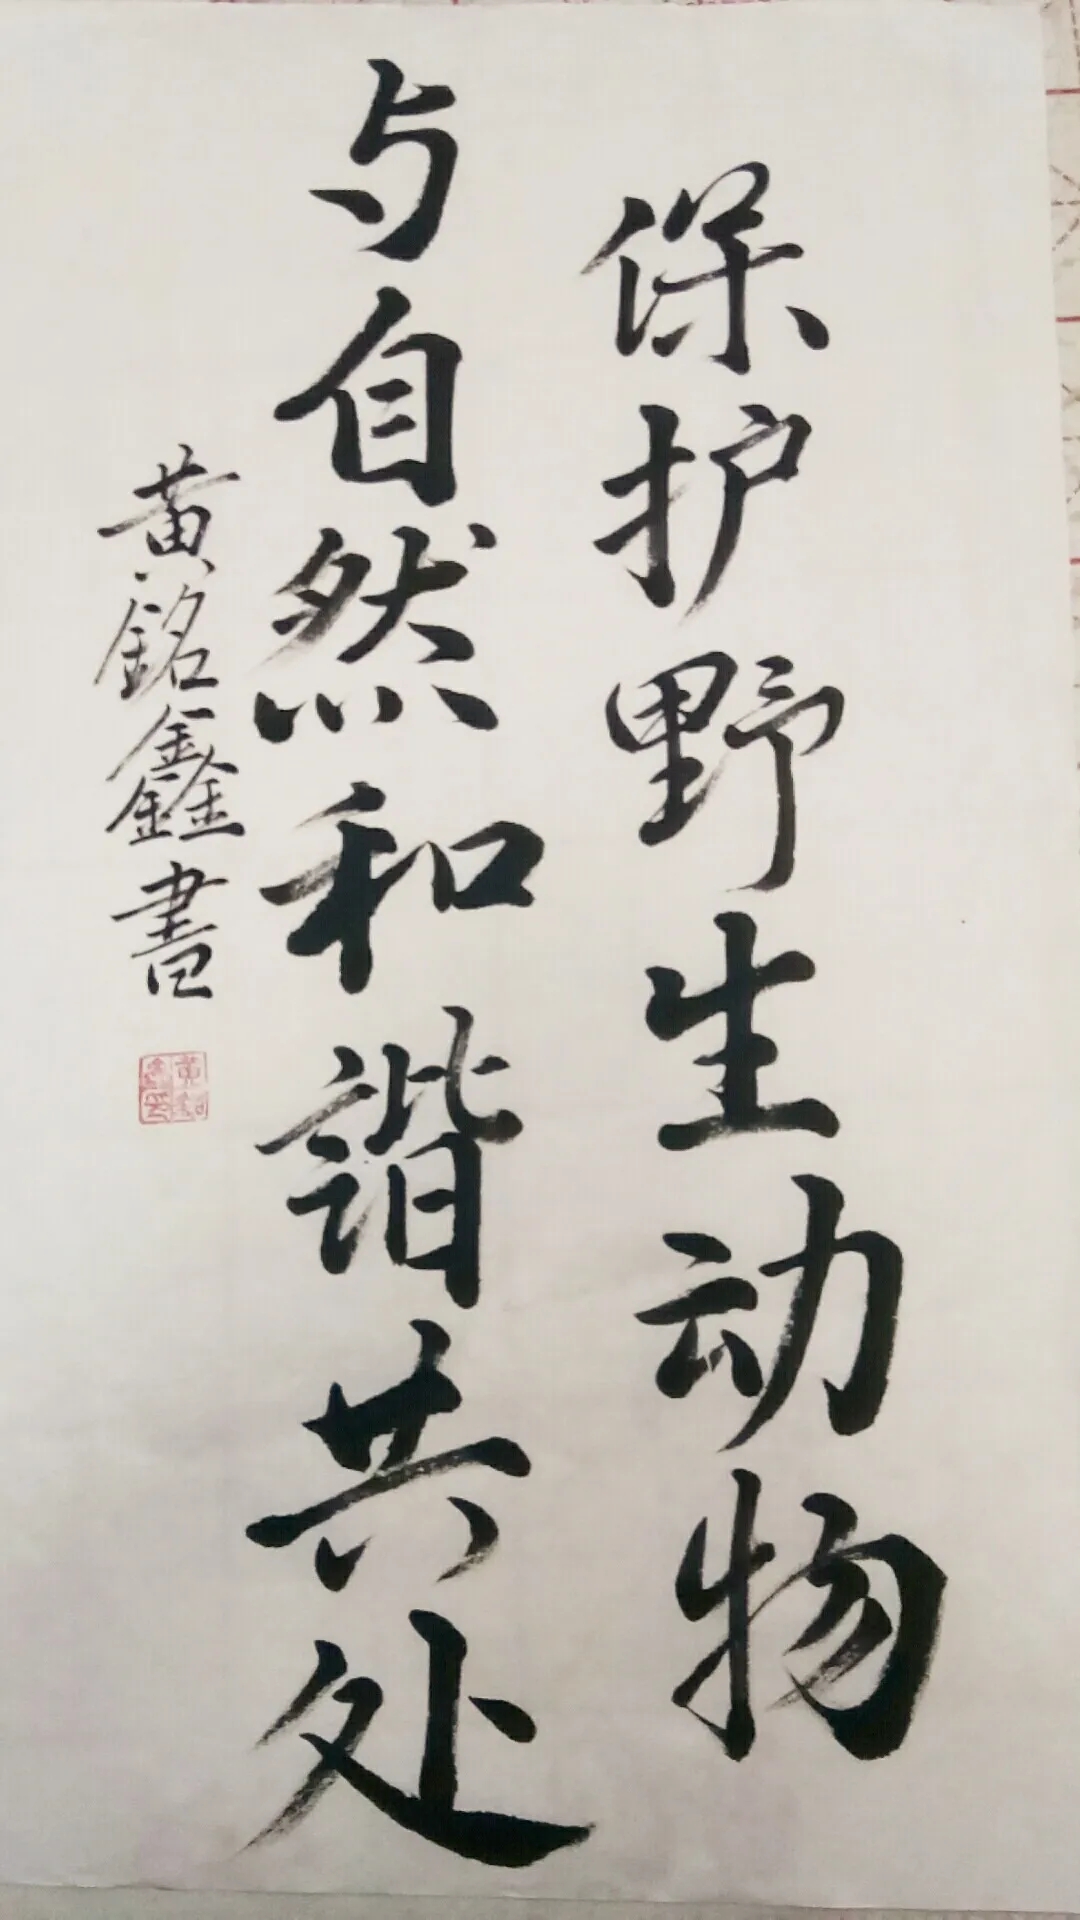 保护野生动物
与自然和谐共处
黄銘鑫書